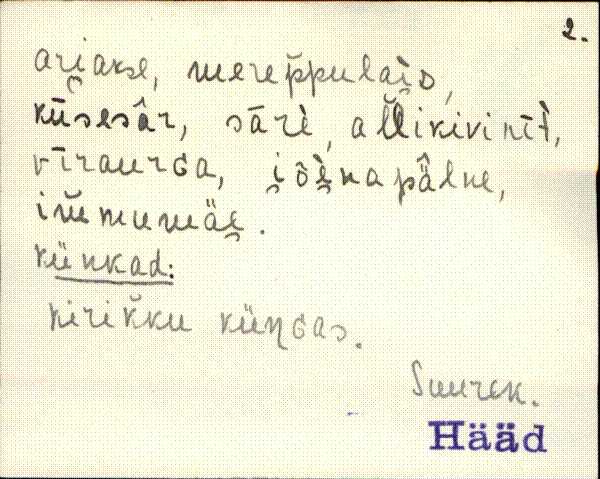 2.
ari̯akse, merep̆pulai̯d,
kǖsesâr, sāri, al̆likivinīt,
vīraurGa, i̯õe̯napä̂lne,
im̆mumäe̯.
künkad:
kirik̆ku küŋGas.
Suurek.
Hääd